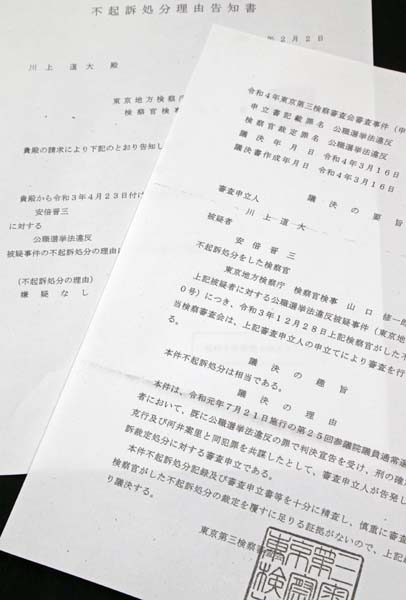 不起訴処分理由告知書
年2月2日
川上道大 殿
東京地方検察庁
検察官検事
貴殿の請求により下記のとおり告知し
貴殿から令和3年4月23日付け
安倍晋三
に対する
公職選挙法違反
被疑事件の不起訴処分の理由は
(不起訴処分の理由)
嫌疑なし
令和4年東京第三検察審査会審査事件(申
申立書記載罪名 公職選挙法違反
検察官裁定罪名 公職選挙法違反
議決年月日 令和4年3月16日
議決書作成年月日 令和4年3月16日
議決の要旨
審査申立人
川上道大
被疑者
安倍晋三
不起訴処分をした検察官
東京地方検察庁 検察官検事 山口
上記被疑者に対する公職選挙法違反被疑事件(東京地
0号)につき、令和3年12月28日上記検察官がした不
当検察審査会は、上記審査申立人の申立てにより審査を行
る。
議決の趣旨
本件不起訴処分は相当である。
議決の理由
本件は、令和元年7月21日施行の第25回参議院議員通常選
者において、既に公職選挙法違反の罪で判決宣告を受け、刑の確
克行及び河井案里と同犯罪を共謀したとして、審査申立人が告発し
訴裁定処分に対する審査申立である。
本件不起訴処分記録及び審査申立書等を十分に精査し、慎重に審査
検察官がした不起訴処分の裁定を覆すに足りる証拠がないので、上記
り議決する。
東京第三検察審